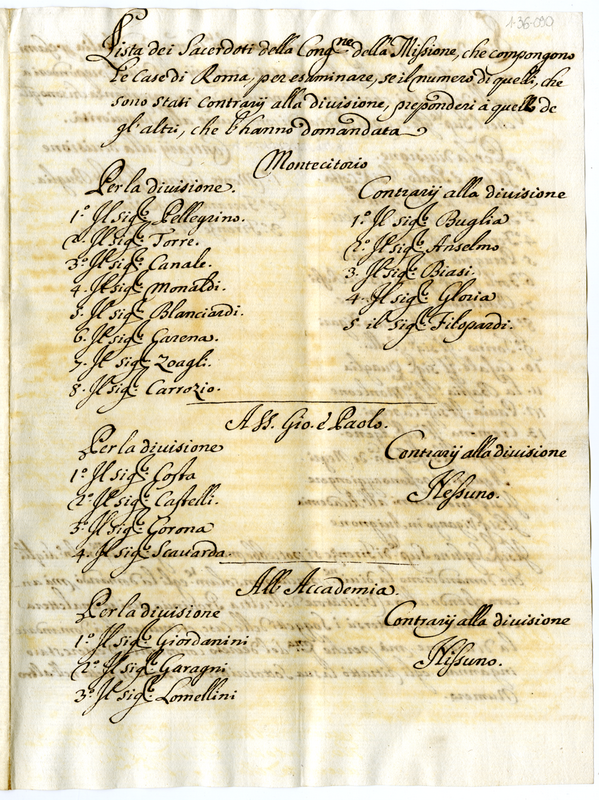 1-36-090
Lista dei Sacerdoti della Cong.ne della Missione, che compongono
le Case di Roma, per esaminare, se il numero di quelli, che
sono stati contrarij alla divisione, preponderi à quello de
gl'altri, che l'hanno domandata
Montecitorio
Per la divisione.
1.º Il sig.r Pellegrino.
2. Il sig.r Torre.
3.º Il sig.r Canale.
4. Il sig.r Monaldi.
5. Il sig.r Blanciardi.
6. Il sig.r Garenas.
7. Il sig.r Zoagli.
8. Il sig.r Carrozio.
Contrarij alla divisione
1.º Il sig.r Buglia
2.º Il sig.r Anselmo
3. Il sig.r Biasi.
4. Il sig.r Gloria
5 il sig.r Filopardi.
A SS. Gio. è Paolo.
Per la divisione
1.º Il sig.r Costa
2.º Il sig.r Castelli.
3.º Il sig.r Corona
4. Il sig.r Scavarda.
Contrarij alla divisione
Nessuno.
All' Accademia.
Per la divisione
1.º Il sig.r Giordanini
2.º Il sig.r Garagni
3.º Il sig.r Lomellini
Contrarij alla divisione
Nissuno.